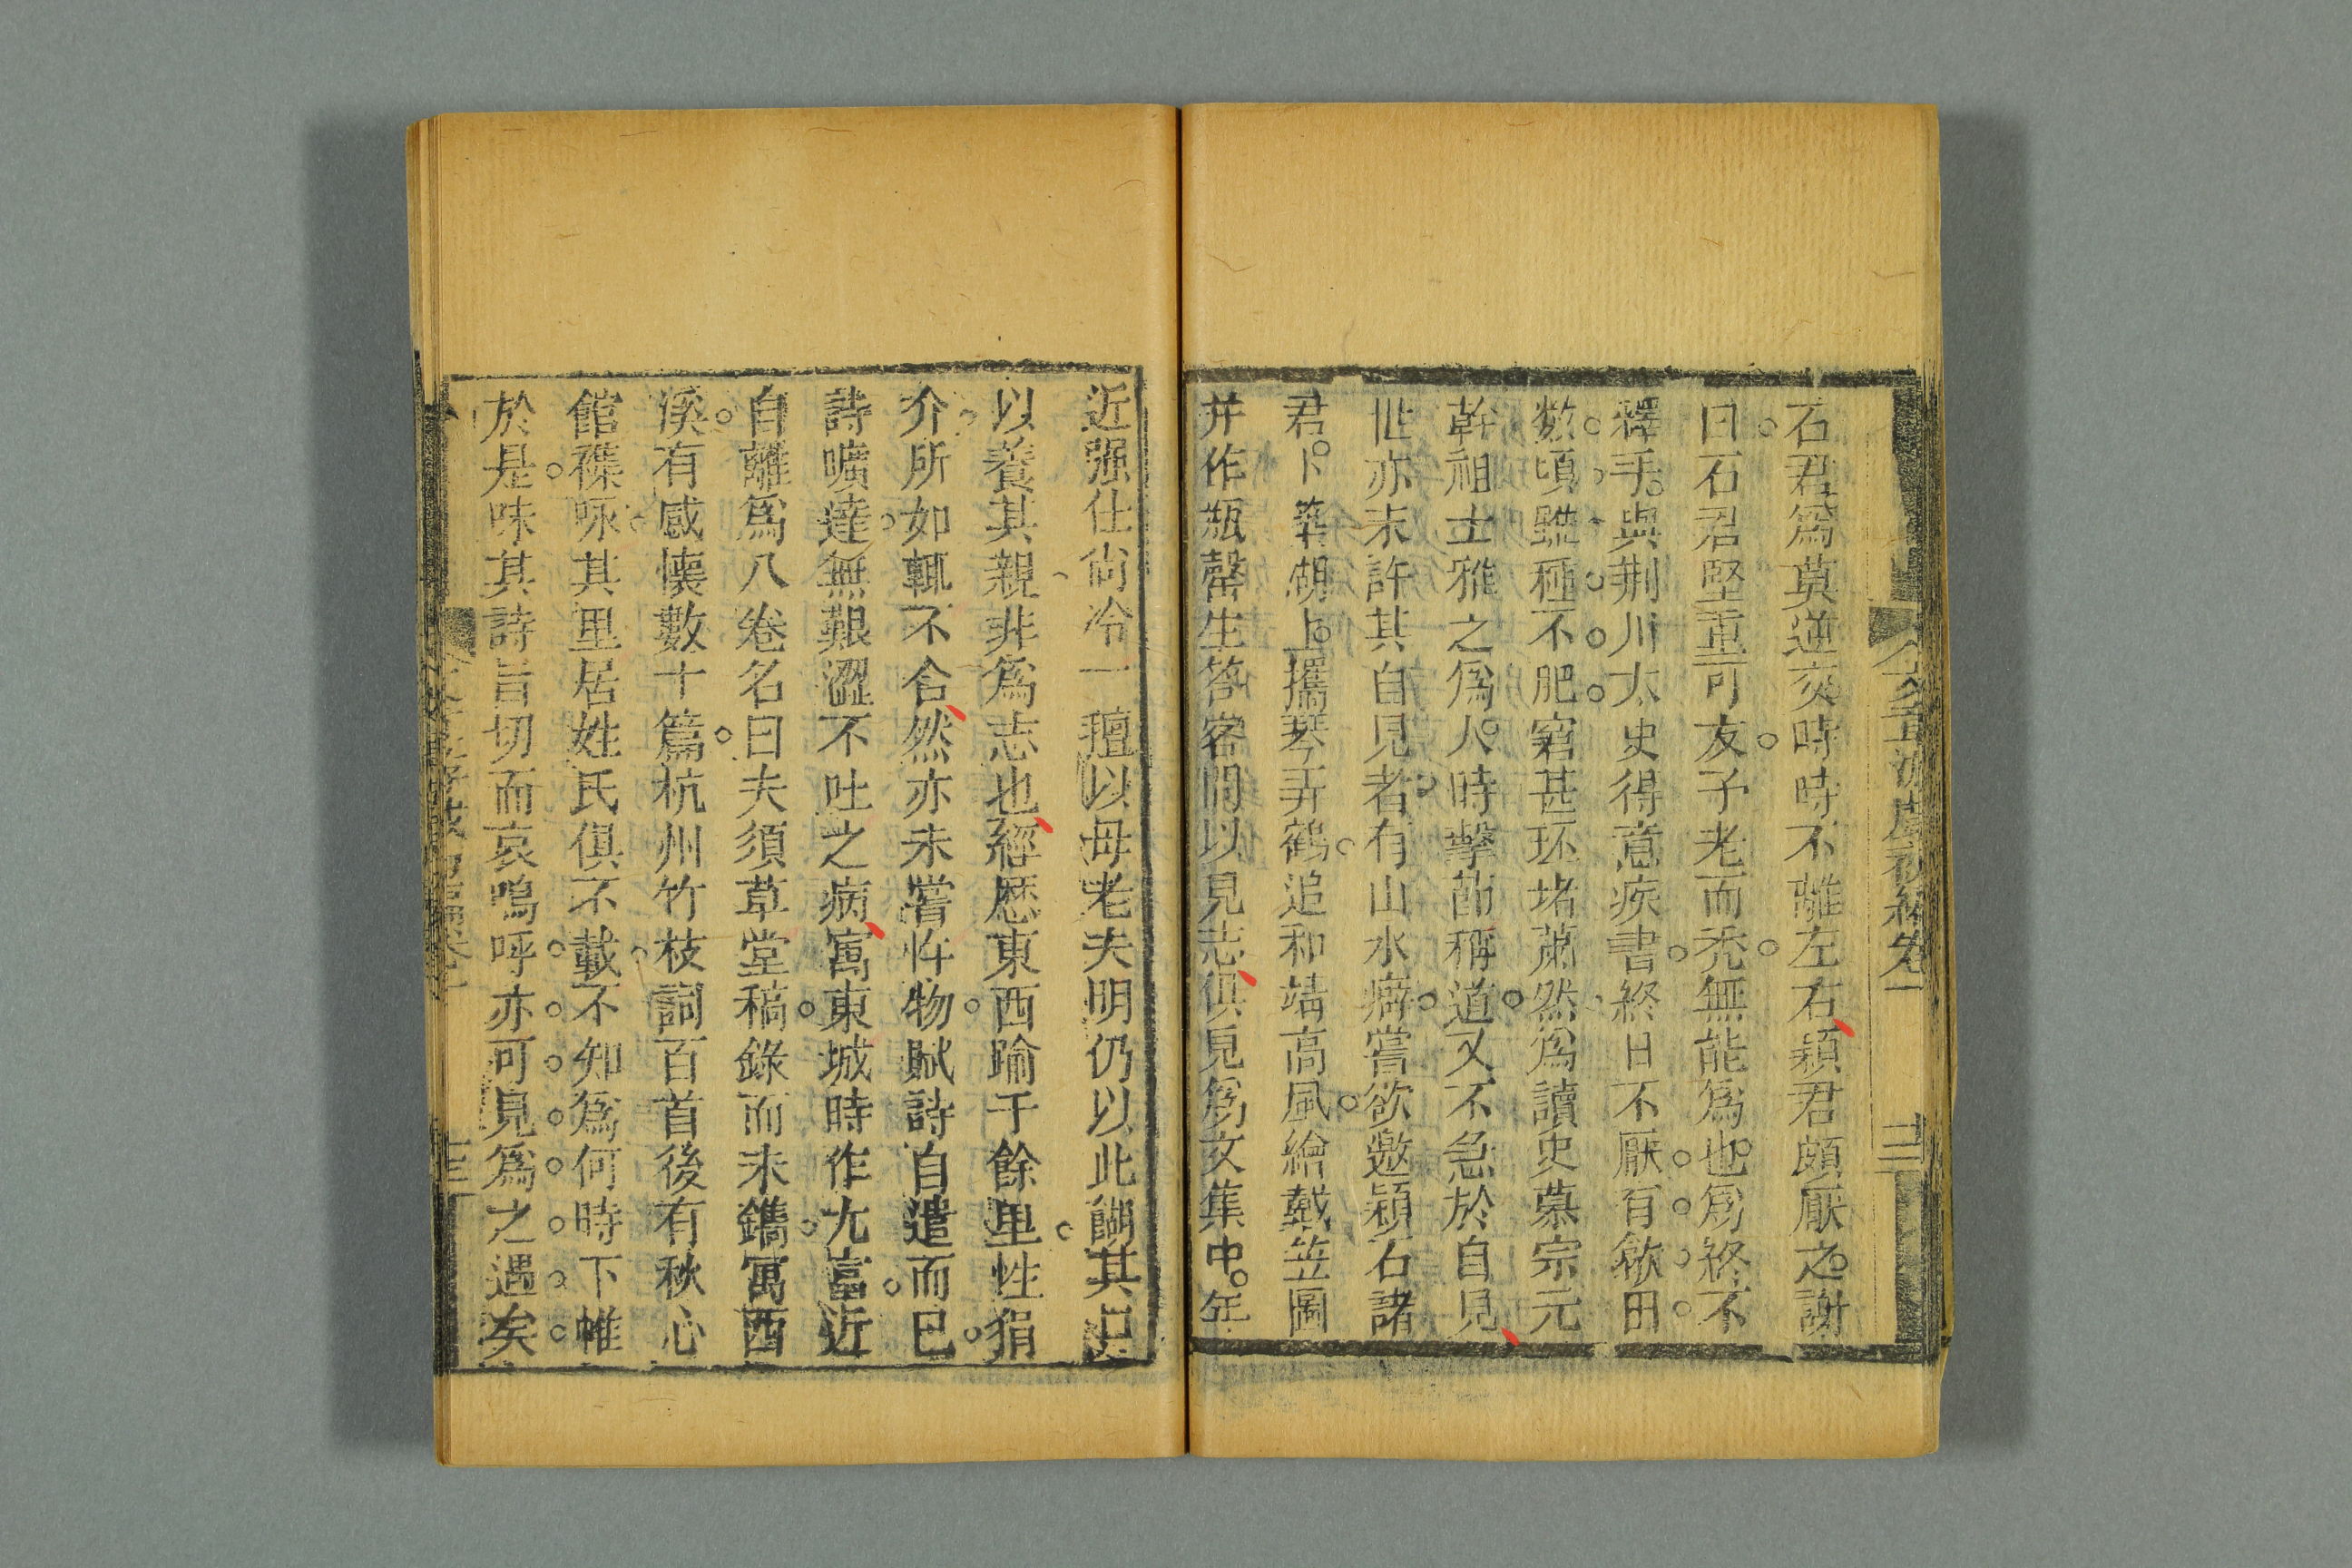 石君爲莫逆交時時不離左右頴君頗厭之謝
曰石君堅重可友子老而禿無能爲也爲終不
釋手與荆川太史得意疾書終日不厭有歙田
数頃雖種不肥窘甚环堵蕭然爲讀史慕宗元
幹祖士雅之爲人時擊節稱道又不急於自見
世亦未許其自見者有山水癖嘗欲邀穎石諸
君卜築湖上攜琴弄鶴追和靖高風繪戴笠圖
并作瓶罄生答客問以見志俱見爲文集中年
近强仕尚冷一氊以母老夫明仍以此餬其口
以養其親非爲志也經歷東西踰千餘里性狷
介所如輒不合然亦未嘗忤物賦詩自遣而已
詩曠達無艱澀不吐之病寓東城時作尤富近
自離爲八卷名曰夫須草堂稿錄而未鐫寓西
溪有感懷數十篇杭州竹枝詞百首後有秋心
館襍咏其里居姓氏俱不載不知爲何時下帷
於是味其詩旨切而哀嗚呼亦可見爲之遇矣
卷一
三